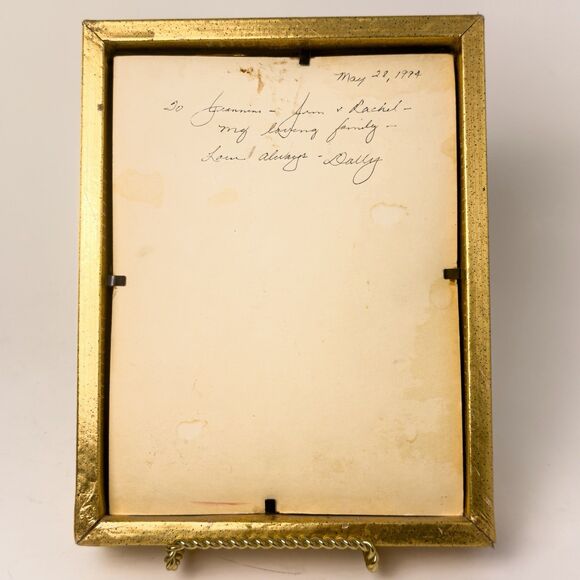 May 28, 1994
To Jeannine - Jim & Rachel -
My loving family -
Love always - Dally